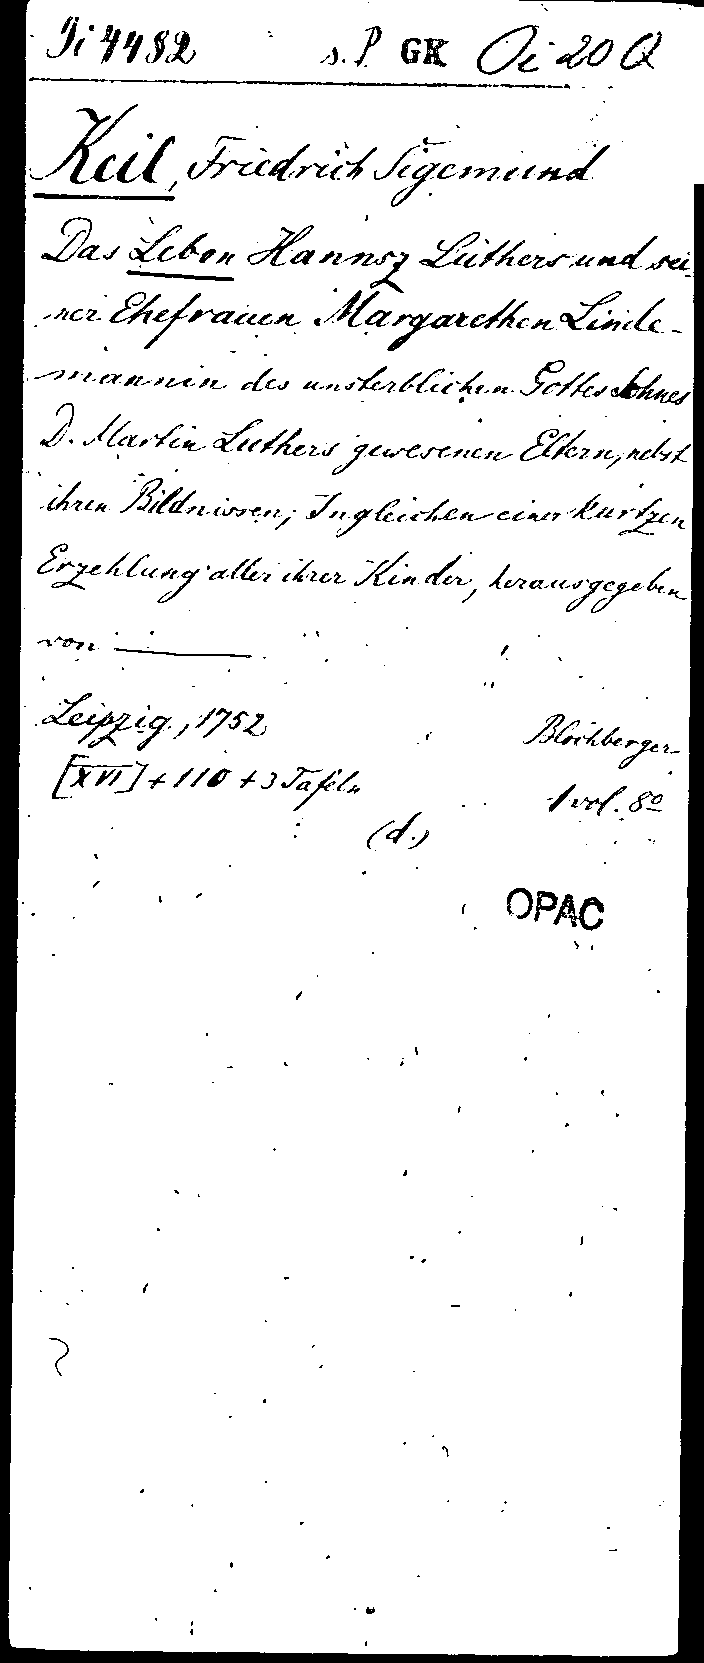 Di 4482 s. P. GK Oi 20 Q
Keil, Friedrich Sigemund
Das Leben Hannsz Luthers und sei-
ner Ehefrauen Margarethen Linde-
mannin des unsterblichen Gottes Sohnes
D. Martin Luthers gewesenen Eltern, nebst
ihren Bildnissen; Ingleichen einer kurtzen
Erzehlung aller ihrer Kinder, herausgegeben
von ———
Leipzig, 1752 Blochberger
[XVI] + 110 + 3 Tafeln 1 vol. 8º
(d.)
OPAC